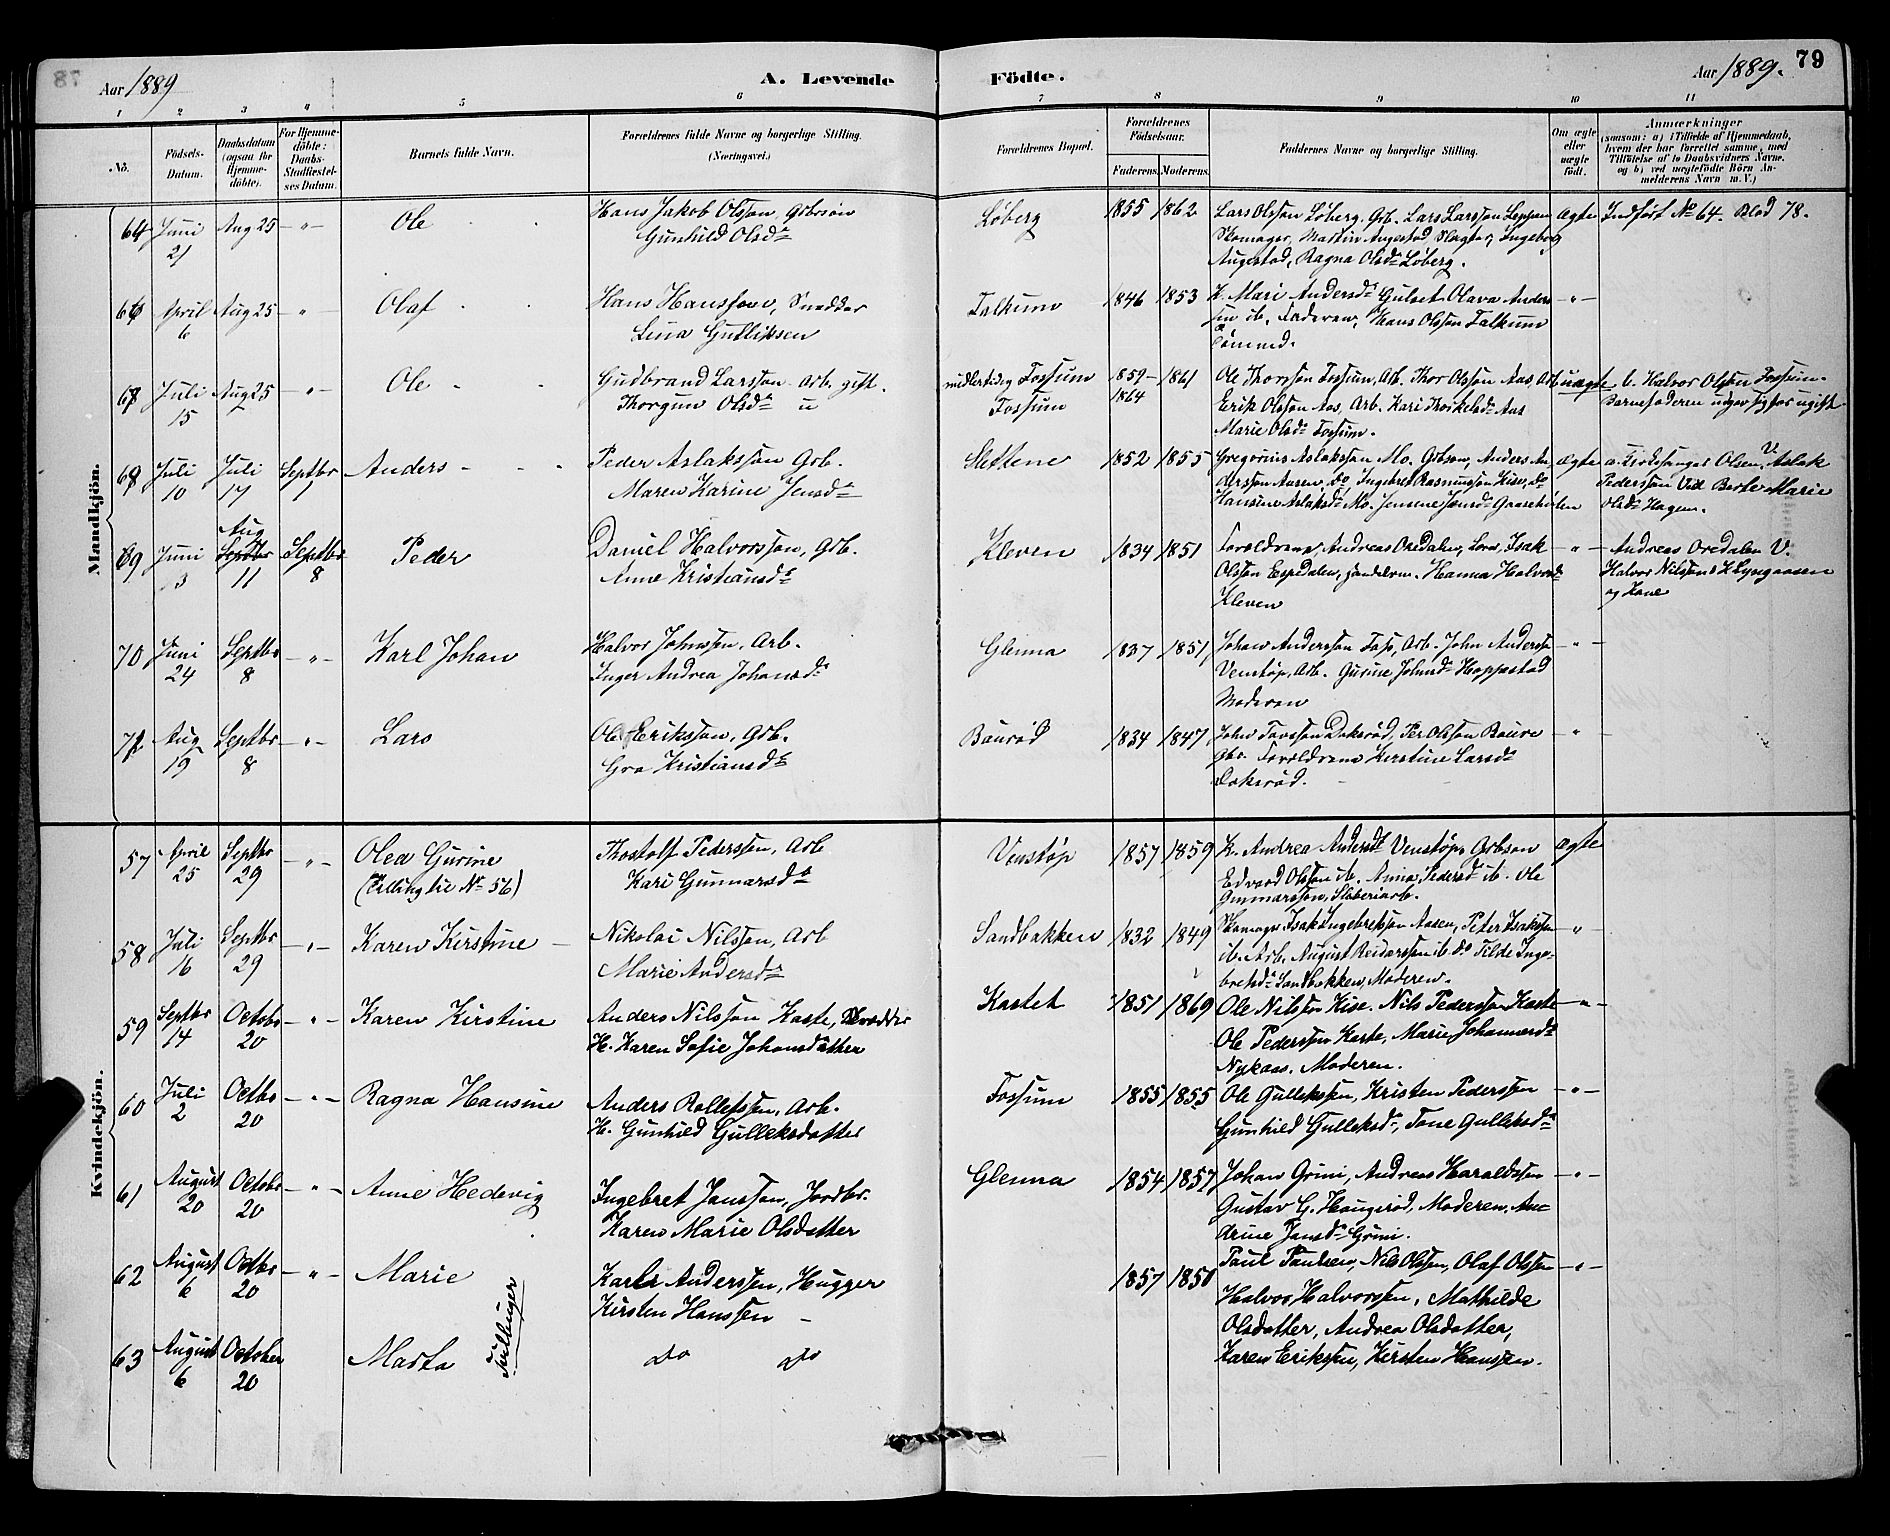 78
Aar 1889
A. Levende
Födte.
Aar 1889.
79
1 2 3 4 5 6 7 8 9 10 11
No.
Födsels-Datum.
Daabsdatum (ogsaa for Hjemme-döbte).
For Hjemme-döbte: Daabs-Stadfæstel-ses Datum.
Barnets fulde Navn.
Forældrenes fulde Navne og borgerlige Stilling.
(Næringsvei.)
Forældrenes Bopæl.
Forældrenes Födselsaar.
Faderens. Moderens.
Faddernes Navne og borgerlige Stilling.
Om ægte eller uægte födt.
Anmærkninger
(saasom: a) i Tilfælde af Hjemmedaab,
hvem der har forrettet samme, med
Tilföielse af to Daabsvidners Navne,
og b) ved uægtefödte Börn An-
melderens Navn m. V.)
Mandkjön.
64 Juni 21 Aug 25 – " – Ole
Hans Jakob Olsson, Gbrsøn
Gunhild Olsdr
Löberg 1855 1862
Lars Olsson Löberg, Gb. Lars Larsson
Skomager, Martin Augestad Slagter, Ingeborg
Augestad, Ragna Olsdr Löberg.
ægte Indført No 64. Blad 78.
66 April 6 Aug 25 – " – Olaf
Hans Hansson, Snedker
Lina Gulliksen
Falkum 1846 1853
K. Mari Andersdr Gulset. Olava Ander
sen ib. Faderen, Hans Olsson Falkum
– " –
67 Juli 15 Aug 25 – " – Ole
Gudbrand Larsson Arb. gift.
Thorgun Olsdr u
midlertidig Fossum
Fossum
1859 – 1861
1864
Ole Thorsson Fossum, Arb. Thor Olsson Aas, Arb
Erik Olsson Aas, Arb. Kari Thorkelsdr Aas
Marie Olsdr Fossum.
uægte b. Halvor Olsen Fossum.
Barnefaderen udgav sig for ugift
68 Juli 10 Juli 17 Septbr 1 Anders
Peder Aslaksson Grb.
Maren Karine Jensdr
Slettene 1852 1855
Gregorius Aslaksson Mo, Gbrson, Anders An
dersson Aasen, do Ingebret Rasmusson Kise, do
Hansine Aslaksdr Mo. Jensine Jensdr Gaaseholen
ægte a. Kirkesanger Olsen, V. Aslak
Pedersson Vid Berte Marie
Olsdr Hagen.
69 Juni 3 Aug Septbr 11 Septbr 8 Peder
Daniel Halvorsson, Grb.
Anne Kristiansdr
Kleven 1834 1851
Forældrene, Andreas Oredalen, Isak
Olsson Espedalen, Hanna Halvorsdr
Kleven
– " – Andreas Oredalen V.
Halvor Nilssen Klyngaasen
og Kone
70 Juni 24 Septbr 8 – " – Karl Johan
Halvor Johnssen, Arb.
Inger Andrea Johansdr
Glenna 1837 1851
Johan Andersson Arb. John Andersso
Venstøp, Arb. Gurine Johnsdr Hoppestad
Moderen
– " –
72 Aug 19 Septbr 8 – " – Lars
Ole Eriksson, Gbr.
Gro Kristiansdr
Baurød 1834 1847
John Dokrød, Per Olsson Baure
Gbr. Forældrene Kirstine Larsdr
Dokrød.
– " –
Kvindekjön.
57 April 25 Septbr 29 – " – Olea Gurine
(Tvilling til No 56)
Thostolf Pederssen, Arb
Kari Gunnarsdr
Venstøp 1857 1859
K. Andrea Andersdr Venstøp, Gbrson
Edvard Olsson ib. Anna Pedersdr ib. Ole
Gunnarsson, Sliberiarb.
ægte
58 Juli 16 Septbr 29 – " – Karen Kirstine –
Nikolai Nilsson, Arb
Marie Andersdr
Sandbakken 1832 1849
Skomager Isak Ingebretsson Aasen, Peter Isakssen
ib. Arb. August Reidarssen ib do Tilde Inge-
bretsdr Sandbakken, Moderen.
– " –
59 Septbr 14 Octobr 20 – " – Karen Kirstine
Anders Nilsson Kaste, Skrædder
H. Karen Sofie Johansdatter
Kastet 1851 1869
Ole Nilsson Kise. Nils Pederssen Kaste
Ole Pederssen Kaste, Marie Johannesdr
Nykaas. Moderen.
– " –
60 Juli 2 Octbr 20 – " – Ragna Hansine
Anders Rollefssen, Arb.
H. Gunhild Gulleksdatter
Fossum 1855 1855
Ole Gullekssen, Kristen Pederssen
Gunhild Gulleksdr, Tone Gulleksdr
– " –
61 August 20 Octobr 20 – " – Anne Hedevig
Ingebret Jansson, Jordbr.
Karen Marie Olsdatter
Glenna 1854 1857
Johan Grini, Andreas Haraldssen
Gustav G. Haugerød, Moderen, An-
drine Jansdr Grini.
– " –
62 August 6 Octbr 20 – " – Marie
Tvillinger
Karl Anderssen, Hugger
Kirsten Hanssen –
1857 1850
Paul Paulsen, Nils Olssen, Olaf Olssen
Halvor Halvorssen, Mathilde
Olsdatter, Andrea Olsdatter,
Karen Erikssen, Kirsten Hanssen.
– " –
63 August 6 October 20 Marta
do do